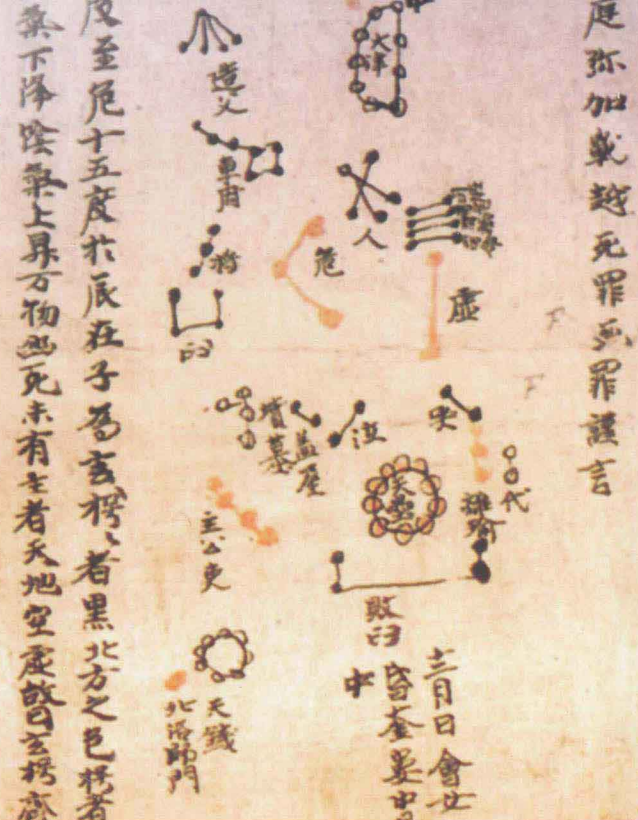 庭弥加戰越死罪死罪謹言
天津
人
虛
哭
代
離瑜
天壘
泣
敗臼
十二月日會女
昏奎婁中
中
造父
車府
危
杵
臼
墳墓
蓋屋
主公吏
天錢
北落師門
度至危十五度於辰在子為玄枵〻者黑北方之色枵者
氣下降陰氣上昇万物幽死未有生者天地空虛故曰玄枵齊